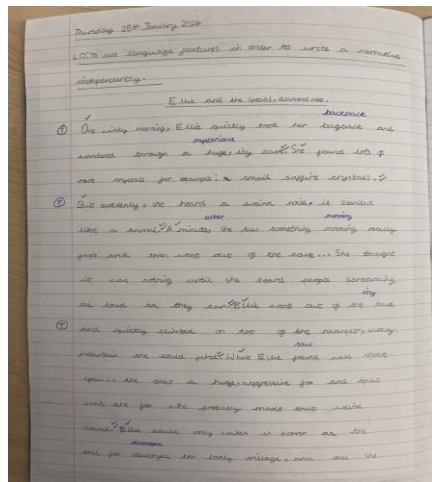 Thursday 25th January 2024
LO: To use language features in order to write a narrative
independently.
Ellie and the special, diamond
backpack
One windy morning, Ellie quickly took her bagpack and
mysterious
wandered through a huge, icy cave. She found lots of
rare crystals for example: small saffire crystals.
But suddenly, she heard a weird noise, it sounded
later moving
like a animal. A minute, she saw something moving really
fast and then went out of the cave... She thought
it was nothing until she heard people screaming
icy
as loud as they can. Ellie went out of the cave
and quickly climbed on top of the nearest,
mountain she could find. What Ellie found will shock
you... she saw a huge, aggressive fox and that
was the fox who probably made that weird
sound. Ellie could only watch in horror as the
fox the lovely village, and all she